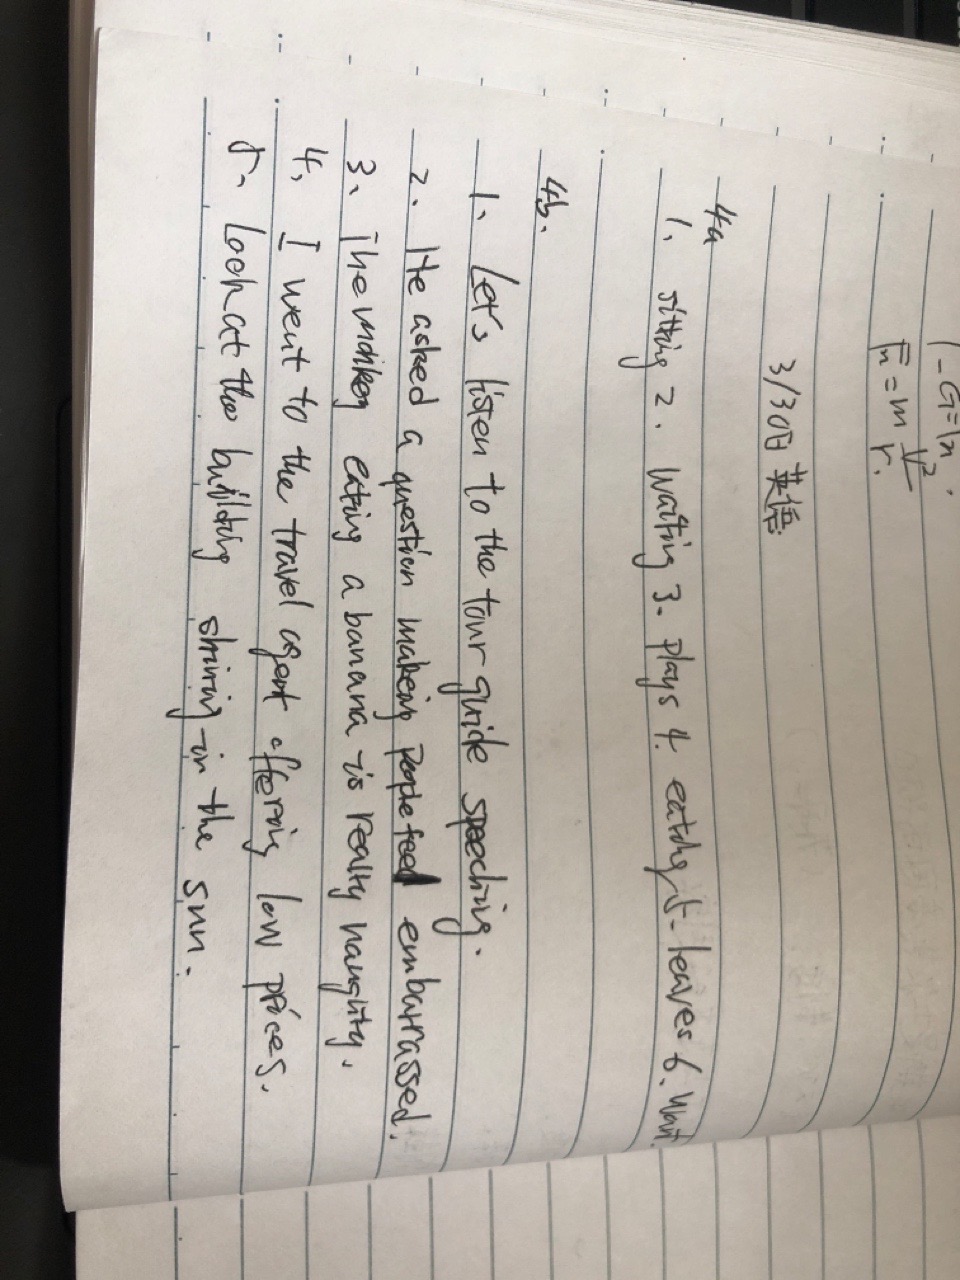 -G=1n.
Fn=m V²/r.
3/30日 英语
4a
1、sitting 2. waiting 3. plays 4. eating 5. leaves 6. want
4b.
1、Let's listen to the tour guide speeching.
2、He asked a question making people feel embarrassed.
3、The monkey eating a banana is really naughty.
4、I went to the travel agent offering low prices.
5、Look at the building shining in the sun.